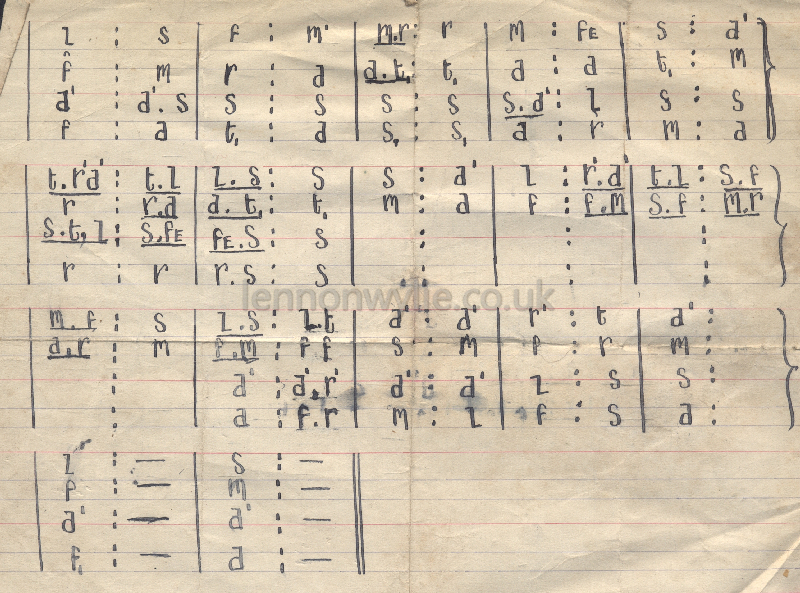 | l : s | f : m' | m.r : r | m : fe | s : d' }
| f : m | r : d | d.t, : t, | d : d | t, : m
| d' : d'.s | s : s | s : s | s.d' : l | s : s
| f : d | t, : d | s, : s, | d : r | m : d
| t.r'd' : t.l | l.s : s | s : d' | l : r'.d' | t.l : s.f }
| r : r.d | d.t, : t, | m : d | f : f.m | s.f : m.r
| s.t, l : s.fe | fe.s : s | : | : | :
| r : r | r.s : s | : | : | :
lennonwylie.co.uk
| m.f : s | l.s : l.t | d' : d' | r' : t | d' : }
| d.r : m | f.m : f f | s : m | f : r | m :
| : | d' : d'.r' | d' : d' | l : s | s :
| : | d : f.r | m : l | f : s | d :
| l : — | s : — ||
| f : — | m : — ||
| d' : — | d' : — ||
| f, : — | d : — ||